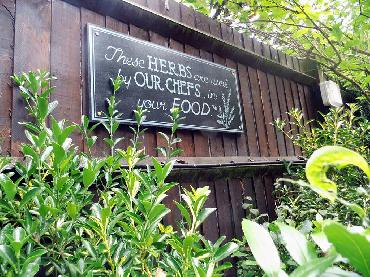 These HERBS are used
by OUR CHEFS in
your FOOD